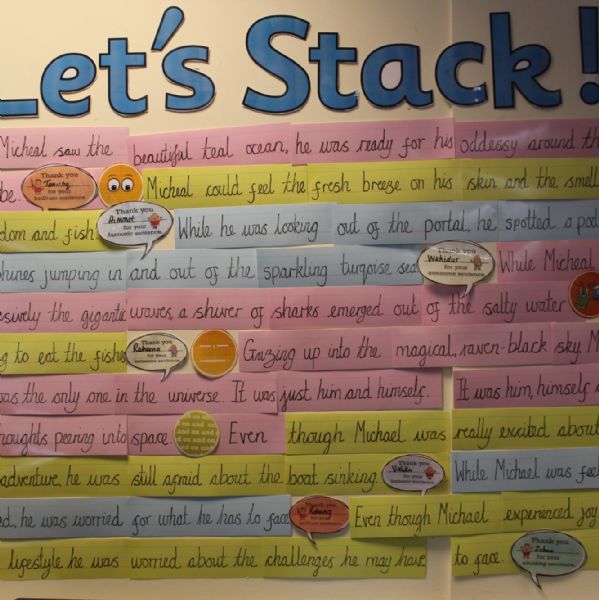 Let's Stack!
Micheal saw the beautiful teal ocean, he was ready for his oddessy around th
be. Thank you for your brilliant sentence. Micheal could feel the fresh breeze on his skin and the smell
dom and fish. Thank you Himmat for your fantastic sentence. While he was looking out of the portal, he spotted a pod
hines jumping in and out of the sparkling turqoise sea Thank you Wahidur for your awesome sentence. While Micheal
esively the gigantic waves, a shiver of sharks emerged out of the salty water
g to eat the fishes Thank you Raheema for your awesome sentence. Grazing up into the magical, raven-black sky. M
was the only one in the universe. It was just him and himself. It was him, himself a
thoughts peering into space Even though Michael was really excited about
adventure, he was still afraid about the boat sinking. Thank you for your fantastic sentence. While Michael was feel
ed, he was worried for what he has to face Thank you for your brilliant sentence. Even though Michael experienced joy
lifestyle he was worried about the challenges he may have to face. Thank you for your amazing sentence.